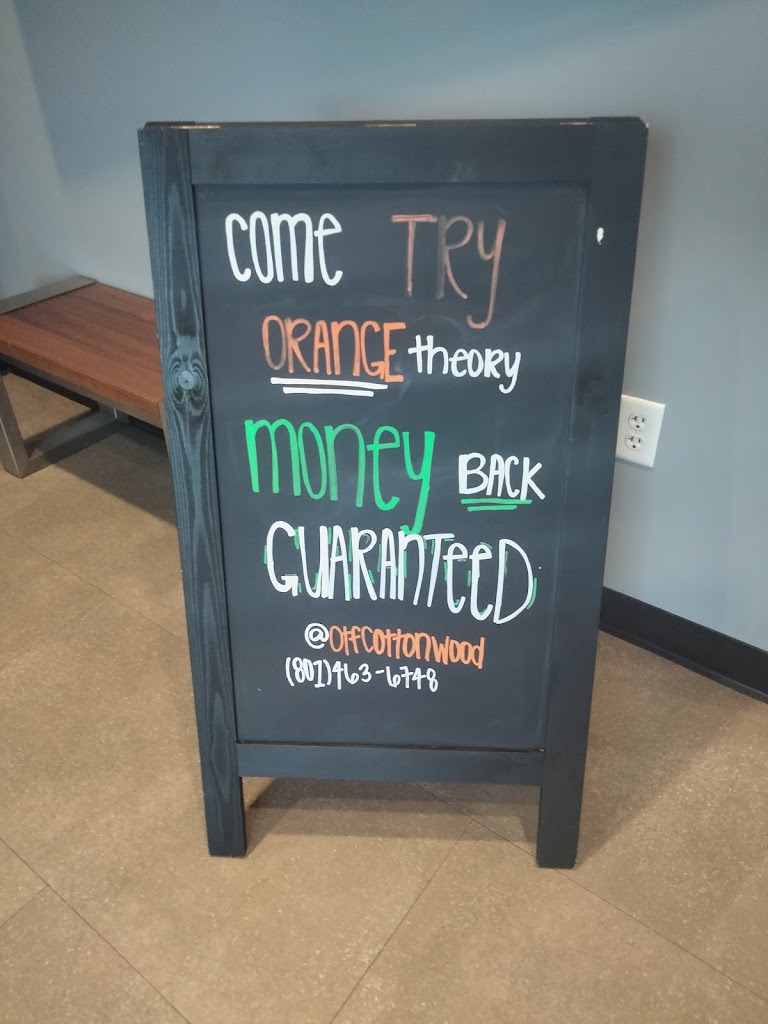 come TRY
ORANGE theory
money BACK
GUARANTeeD
@OTFCOTTonWood
(801)463-6748